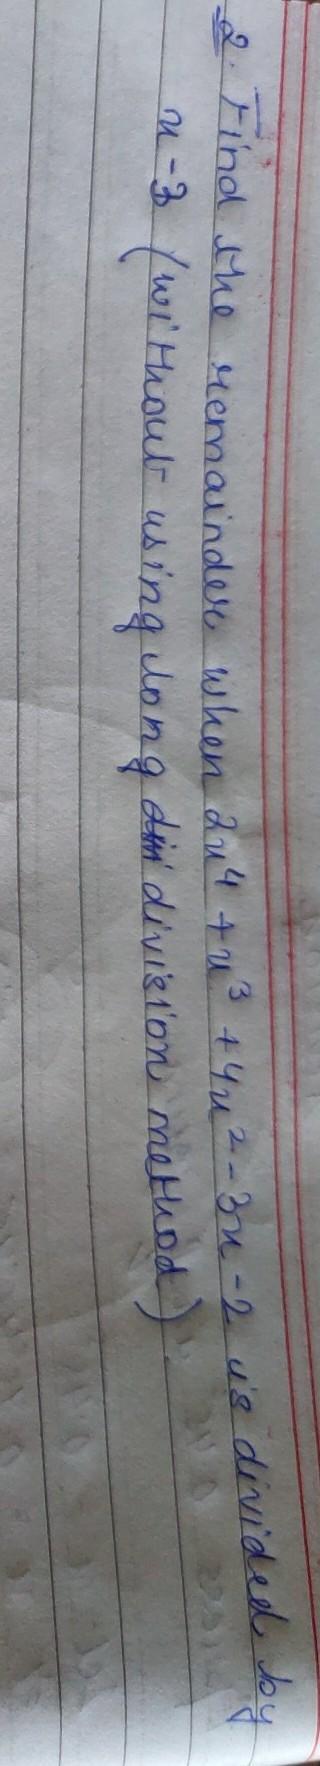 2. Find the remainder when 2x⁴ + x³ + 4x² - 3x - 2 is divided by
x - 3 (without using long division method).